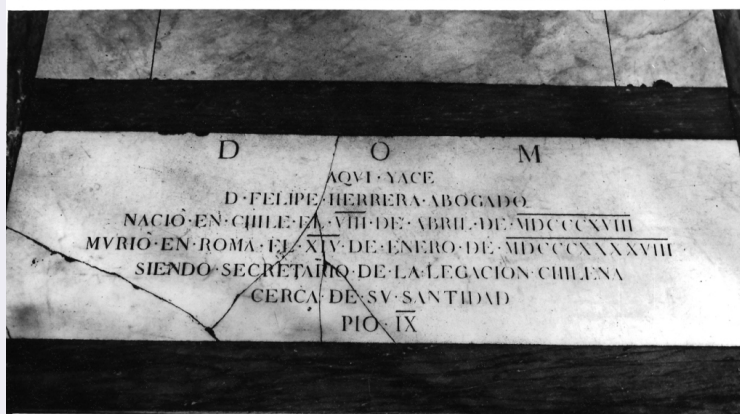 D O M
AQVI·YACE
D·FELIPE·HERRERA·ABOGADO
NACIÒ·EN·CHILE·EL·VIII·DE·ABRIL·DE·MDCCCXVIII
MVRIÒ·EN·ROMA·EL·XIV·DE·ENERO·DE·MDCCCXXXXVIII·
SIENDO·SECRETARIO·DE·LA·LEGACION·CHILENA
CERCA·DE·SV·SANTIDAD
PIO·IX